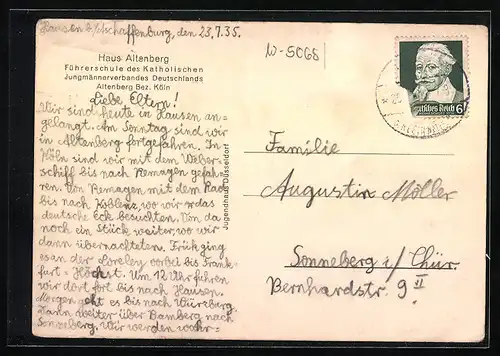 Hausen b/Aschaffenburg, den 23.7.35.
W-5068
Haus Altenberg
Führerschule des Katholischen
Jungmännerverbandes Deutschlands
Altenberg Bez. Köln
Liebe Eltern!
Wir sind heute in Hausen an-
gelangt. Am Sonntag sind wir
in Altenberg fortgefahren. In
Köln sind wir mit dem Weber-
schiff bis nach Remagen gefah-
ren. Von Remagen mit dem Rad
bis nach Koblenz, wo wir das
deutsche Eck besuchten. Von da
noch ein Stück weiter, wo wir
dann übernachteten. Früh ging
es an der Loreley vorbei bis Frank-
furt-Höchst. Um 12 Uhr fuhren
wir dort fort bis nach Hausen.
Morgen geht es bis nach Würzburg.
Dann weiter über Bamberg nach
Sonneberg. Wir werden wahr-
Jugendhaus Düsseldorf
Deutsches Reich
6
Familie
Augustin Möller
Sonneberg i/Thür.
Bernhardstr. 9 II